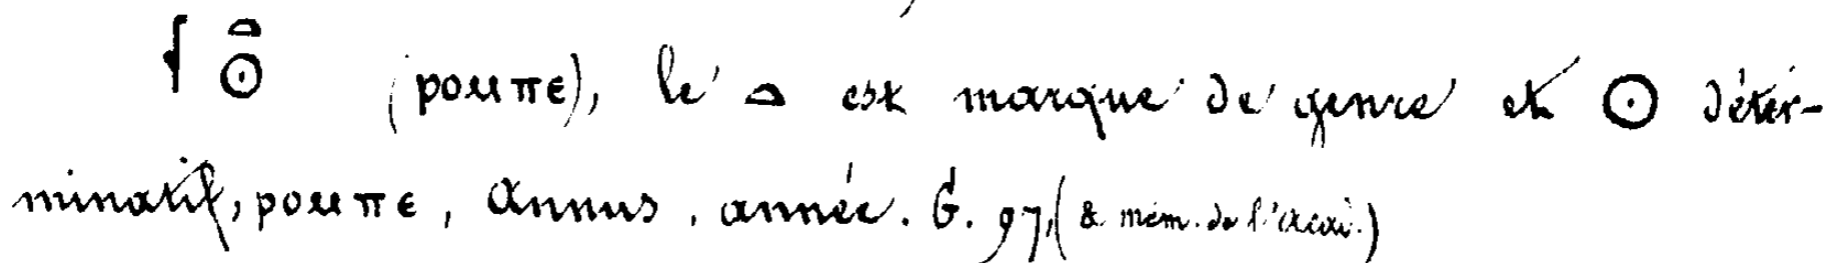 𓆳𓏏𓇳 (ⲣⲟⲙⲡⲉ), le 𓏏 est marque de genre et 𓇳 déter-
minatif, ⲣⲟⲙⲡⲉ, annus, année. G. 97, (& mém. de l'acad.)